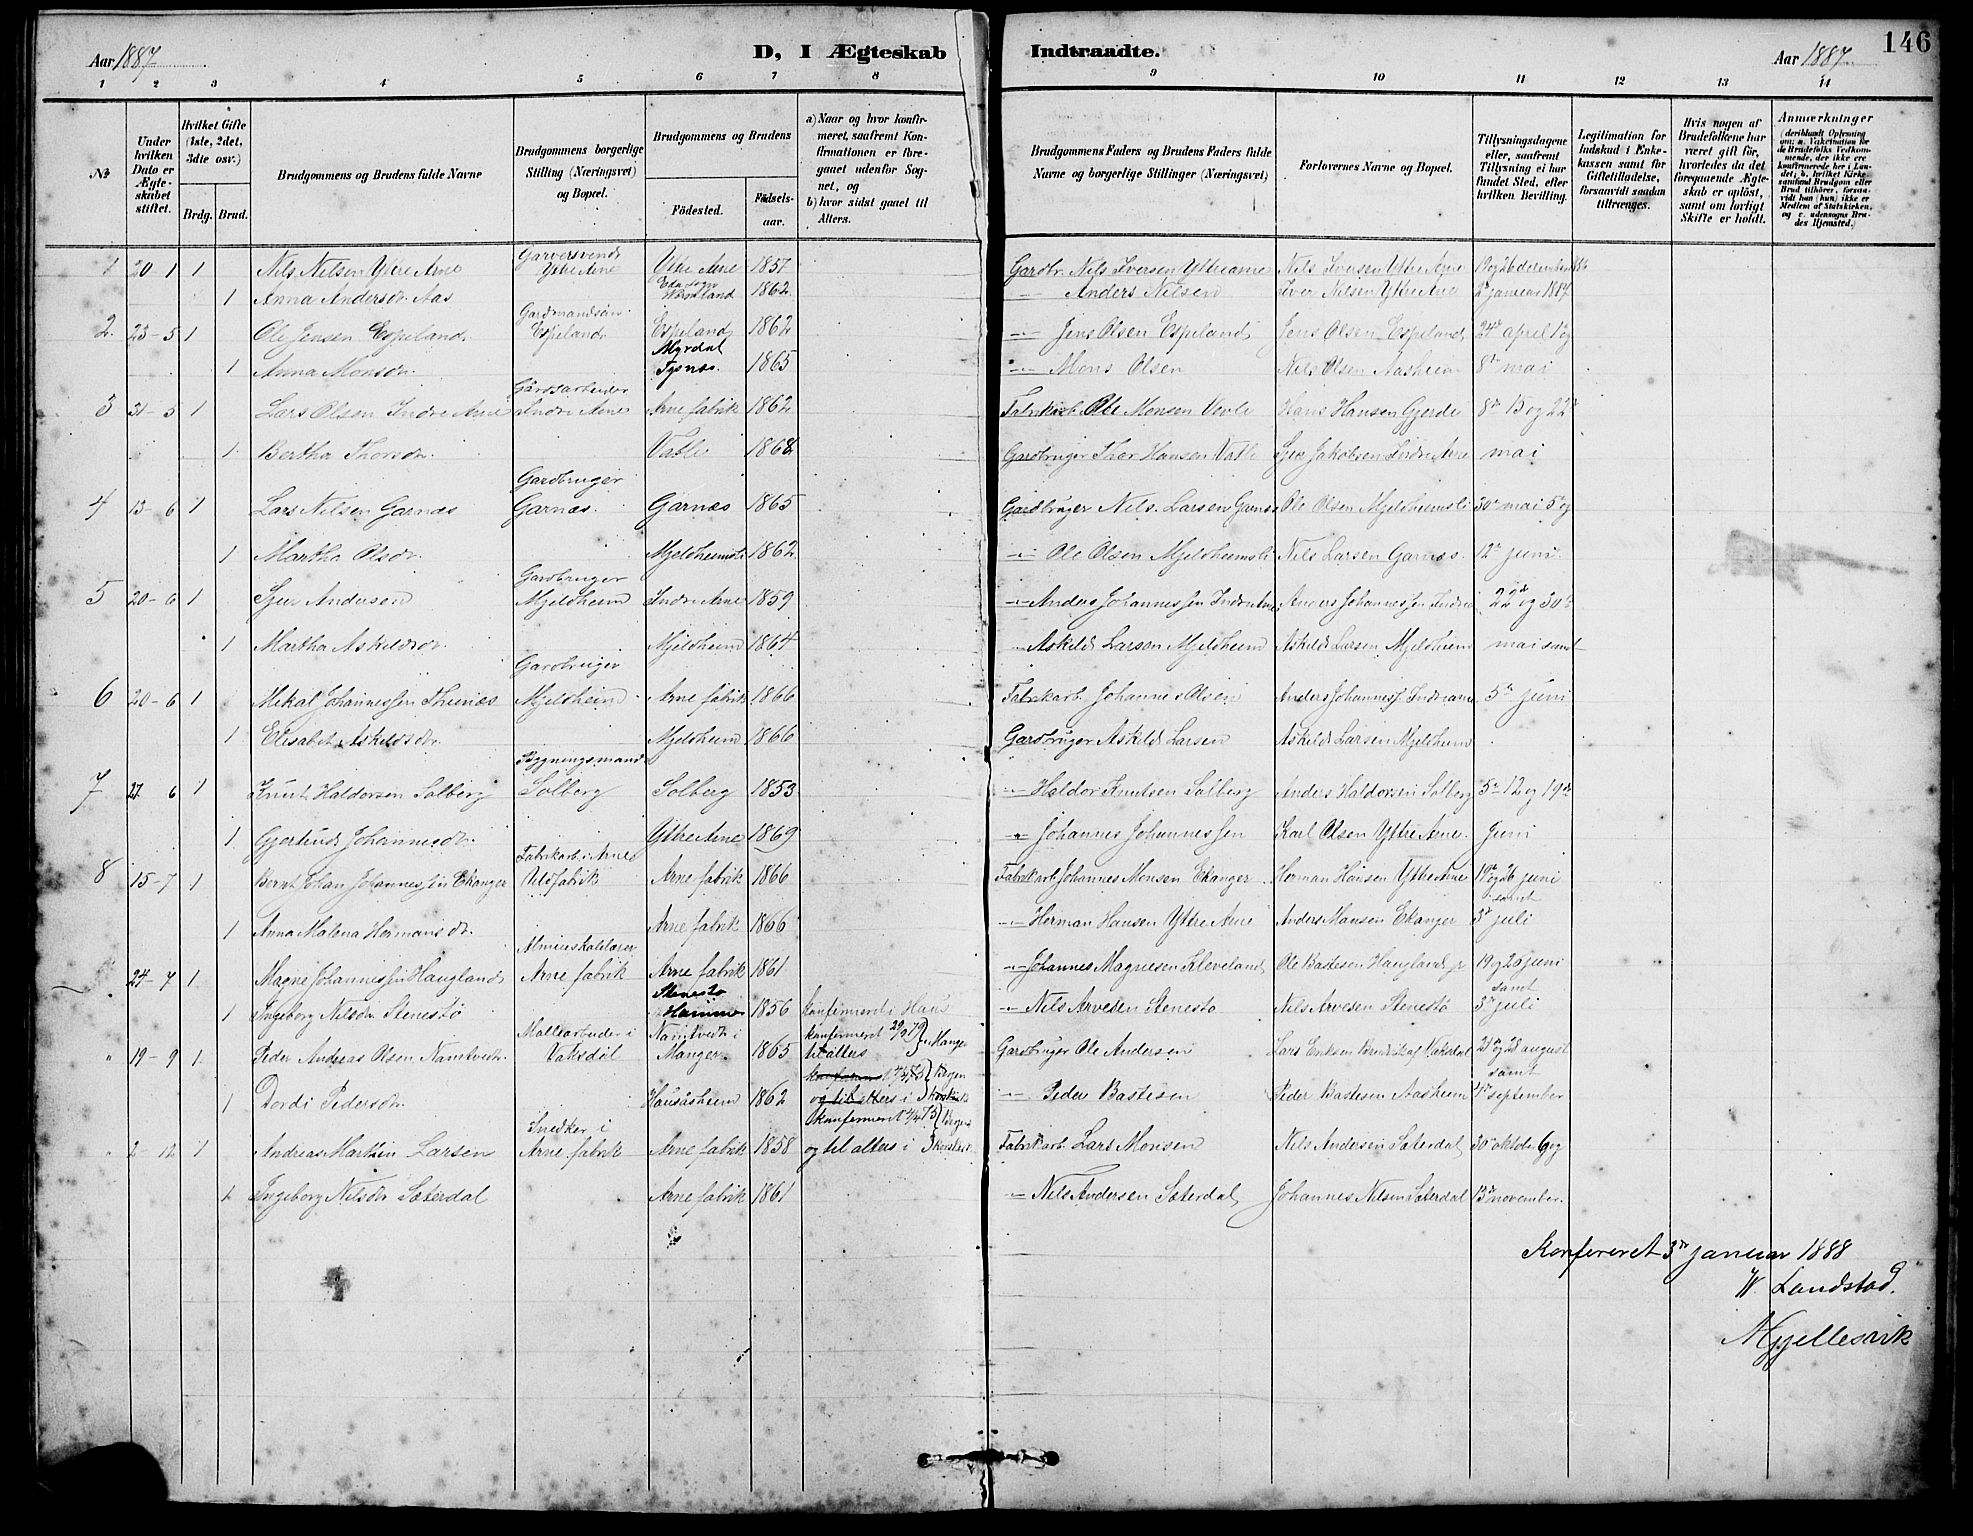 146
Aar 1887
D, I Ægteskab Indtraadte.
Aar 1887
1 2 3 4 5 6 7 8 9 10 11 12 13 14
No
Under hvilken Dato er Ægteskabet stiftet.
Hvilket Gifte (1ste, 2det, 3dte osv.)
Brdg. Brud.
Brudgommens og Brudens fulde Navne
Brudgommens borgerlige Stilling (Næringsvei) og Bopæl.
Brudgommens og Brudens
Födested.
Födselsaar.
a) Naar og hvor konfirmeret, saafremt Konfirmationen er foregaaet udenfor Sognet, og
b) hvor sidst gaaet til Alters.
Brudgommens Faders og Brudens Faders fulde Navne og borgerlige Stillinger (Næringsvei)
Forlovernes Navne og Bopæl.
Tillysningsdagene eller, saafremt Tillysning ei har fundet Sted, efter hvilken Bevilling.
Legitimation for Indskud i Enkekassen samt for Giftetilladelse, forsaavidt saadan tiltrænges.
Hvis nogen af Brudefolkene har været gift før, hvorledes da det foregaaende Ægteskab er oplöst, samt om lovligt Skifte er holdt.
Anmærkninger
(deriblandt Oplysning om: a. Vakcination for de Brudefolks Vedkommende, der ikke ere konfirmerede her i Landet; b. hvilket Kirkesamfund Brudgom eller Brud tilhører, forsaavidt han (hun) ikke er Medlem af Statskirken, og c. udensogns Brudes Hjemsted.)
1 20-1 1 Nils Nilsen Ytre Arne Garversvend Ytre Arne Ytre Arne 1857 Gardbr. Nils Iversen Ytrearne Nils Iversen Ytre Arne 19 og 26 december 1886
1 Anna Andersdr. Aas 1862 -"- Anders Nilsen Iver Nilsen Ytre Arne 2 januar 1887
2. 23-5 1 Ole Jensen Espeland Gardmandsøn Espeland Espeland 1862 -"- Jens Olsen Espeland Jens Olsen Espeland 24de april 1 og
1 Anna Monsdr. Myrdal Tysnes 1865 -"- Mons Olsen Nils Olsen Aasheim 8de mai
3 31-5 1 Lars Olsen Indre Arne Gardsarbeider Indre Arne Arne fabrik 1862 Fabrikarb. Ole Monsen Hans Hansen Gjerde 8de 15 og 22de
1 Bertha Thorsdr. Valle 1868 Gardbruger Thor Hansen Valle Sjur Jakobsen Indre Arne mai
4 13-6 1 Lars Nilsen Garnæs Gardbruger Garnæs Garnæs 1865 Gardbruger Nils Larsen Garnæs Ole Olsen Mjeldheimsli 30te mai 5te og
1 Martha Olsdr. Mjeldheimsli 1862 -"- Ole Olsen Mjeldheimsli Nils Larsen Garnæs. 12te juni.
5 20-6 1 Sjur Andersen Gardbruger Mjeldheim Indre Arne 1859 -"- Anders Johannessen Indre Arne Anders Johannessen Indre 22de og 30te
1 Martha Askildsdr. Mjeldheim 1864 -"- Askild Larsen Mjeldheim Askild Larsen Mjeldheim mai samt
6 20-6 1 Mikal Johannessen Thunæs Gardbruger Mjeldheim Arne fabrik 1866 Fabrikarb. Johannes Olsen Anders Johanness. Indrearne 5te juni
1 Elisabet Askildsdr. Mjeldheim 1866 Gardbruger Askild Larsen Askild Larsen Mjeldheim
7 27 6 1 Knut Haldorsen Solberg Bygningsmand Solberg Solberg 1853 -"- Haldor Knutsen Solberg Anders Haldorsen Solberg 5te 12 og 19de
1 Gjertrud Johannesdr. Ytre Arne 1869 -"- Johannes Johannessen Karl Olsen Ytre Arne. juni
8 15-7 1 Bernt Johan Johannessen Ekanger Fabrikarb. i Arne Uldfabrik Arne fabrik 1866 Fabrikarb. Johannes Monsen Ekanger Herman Hansen Ytre Arne 19de og 26 juni samt
1 Anna Malena Hermansdr. Arne fabrik 1866 -"- Herman Hansen Ytre Arne Anders Monsen Ekanger 3de juli
24-7 1 Magne Johannessen Haugland Almueskolelærer Arne fabrik Arne fabrik 1861 -"- Johannes Magnesen Kleveland Ole Bastesen Haugland 19 og 26 juni samt
1 Ingeborg Nilsdr. Stenestø Stenestø Hammer 1856 konfirmert i Haus -"- Nils Arvesen Stenestø Nils Arvesen Stenestø 3de juli
" 19-9 1 Peder Andreas Olsen Namtvedt Malearbeider i Vaksdal Namtvedt i Manger 1865 konfirmeret 29/9 79 til alters } i Manger Gardbruger Ole Andersen Lars Eriksen Vaksdal 21 og 28 august samt
1 Dordi Pedersdr. Hausåsheim 1862 og til alters i -"- Peder Bastesen Peder Bastesen Aasheim 4de september
" 2-12 1 Andreas Martin Larsen Snedker i Arne fabrik Arne fabrik 1858 konfirmeret og til alters i Korskirke Fabrikarb. Lars Monsen Nils Andersen Sæterdal 30te oktober 6 og
1 Ingeborg Nilsdr Sæterdal Arne fabrik 1861 -"- Nils Andersen Sæterdal Johannes Nilsen Sæterdal 13de november.
Konfereret 3de januar 1888
W. Landstad.
Mjellesvik